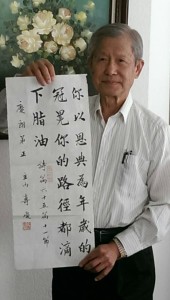 你以恩典為年歲的
冠冕你的路徑都滴
下脂油 詩篇六十五篇十一節